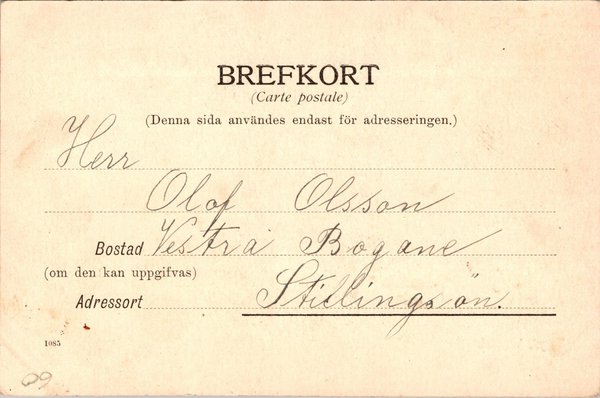 BREFKORT
(Carte postale)
(Denna sida användes endast för adresseringen.)
Herr
Olof Olsson
Bostad Vestra Bogane
(om den kan uppgifvas)
Adressort Stillingsön.
1085
09